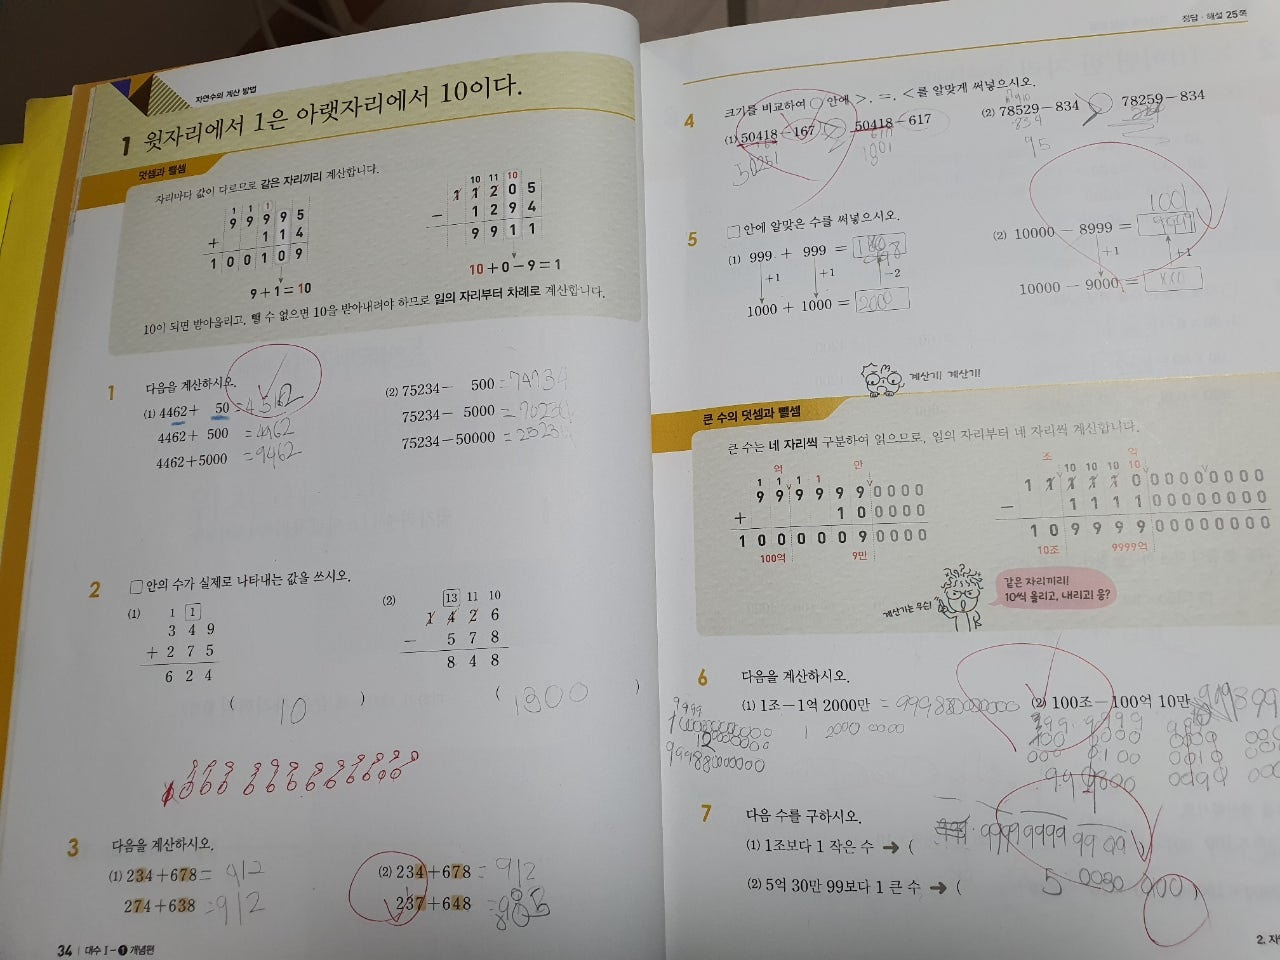 자연수의 계산 방법
1 윗자리에서 1은 아랫자리에서 10이다.
덧셈과 뺄셈
자리마다 값이 다르므로 같은 자리끼리 계산합니다.
1 1 1
9 9 9 9 5
+ 1 1 4
1 0 0 1 0 9
9+1=10
10 11 10
1 1 2 0 5
− 1 2 9 4
9 9 1 1
10+0−9=1
10이 되면 받아올리고, 뺄 수 없으면 10을 받아내려야 하므로 일의 자리부터 차례로 계산합니다.
1 다음을 계산하시오.
(1) 4462+ 50 =4512
4462+ 500 =4962
4462+5000 =9462
(2) 75234− 500 =74734
75234− 5000 =70234
75234−50000 =25234
2 □ 안의 수가 실제로 나타내는 값을 쓰시오.
(1) 1 1
3 4 9
+ 2 7 5
6 2 4
( 10 )
(2) 13 11 10
1 4 2 6
− 5 7 8
8 4 8
( 1300 )
3 다음을 계산하시오.
(1) 234+678= 912
274+638 =912
(2) 234+678 =912
237+648 =
34 | 대수 I-❶ 개념편
정답·해설 25쪽
4 크기를 비교하여 ○ 안에 >, =, <를 알맞게 써넣으시오.
(1) 50418−167 50418−617
50251
(2) 78529−834 > 78259−834
834
95
5 □ 안에 알맞은 수를 써넣으시오.
(1) 999 + 999 =
+1 +1 −2
1000 + 1000 = 2000
(2) 10000 − 8999 =
1001
+1 +1
10000 − 9000 =
계산기! 계산기!
큰 수의 덧셈과 뺄셈
큰 수는 네 자리씩 구분하여 읽으므로, 일의 자리부터 네 자리씩 계산합니다.
억 만
1 1 1 1
9 9 9 9 9 9 0 0 0 0
+ 1 0 0 0 0 0
1 0 0 0 0 0 9 0 0 0 0
100억 9만
조 억
10 10 10 10
1 1 1 1 1 0 0 0 0 0 0 0 0 0
− 1 1 1 1 0 0 0 0 0 0 0 0
1 0 9 9 9 9 0 0 0 0 0 0 0 0
10조 9999억
계산기는 우승!
같은 자리끼리!
10씩 올리고, 내리고! 응?
6 다음을 계산하시오.
(1) 1조−1억 2000만 = 999880000000
1 2000 0000
(2) 100조−100억 10만
7 다음 수를 구하시오.
(1) 1조보다 1 작은 수 ➔ ( 9999 9999 9999 )
(2) 5억 30만 99보다 1 큰 수 ➔ ( 5 0030
2. 자